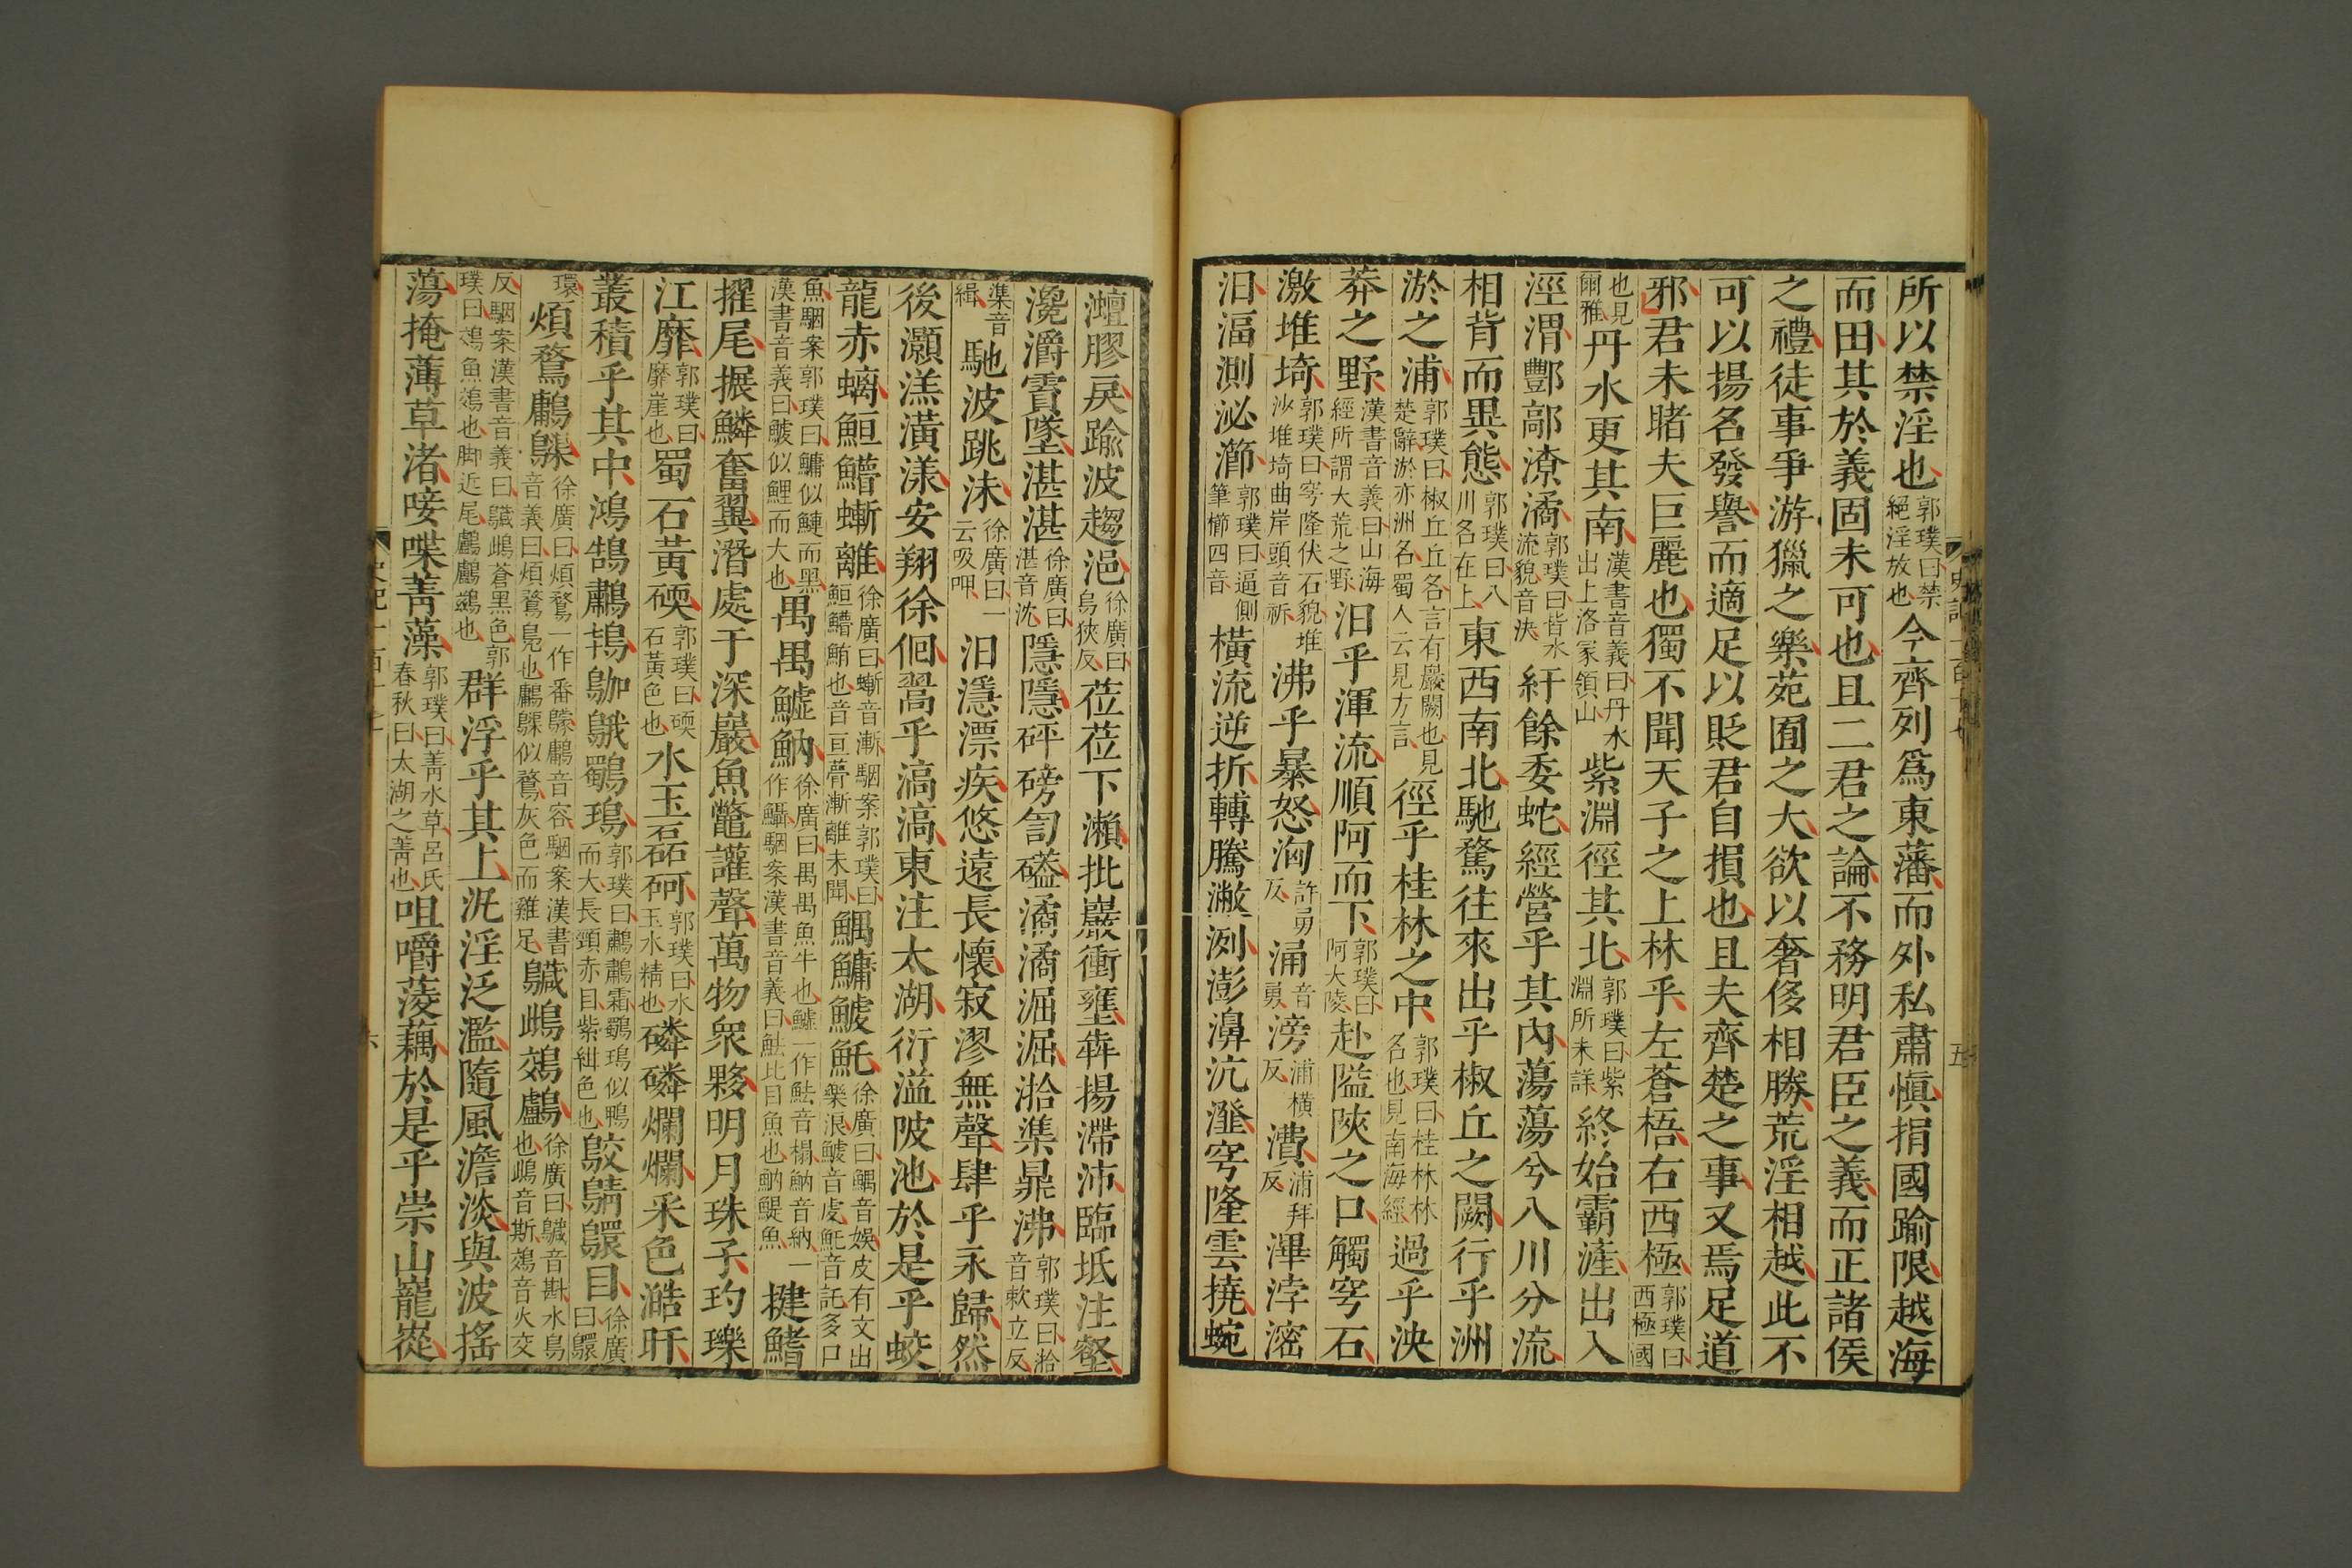 所以禁淫也郭璞曰禁絕淫放也今齊列爲東藩而外私肅愼捐國踰限越海
而田其於義固未可也且二君之論不務明君臣之義而正諸侯
之禮徒事爭游獵之樂苑囿之大欲以奢侈相勝荒淫相越此不
可以揚名發譽而適足以貶君自損也且夫齊楚之事又焉足道
邪君未睹夫巨麗也獨不聞天子之上林乎左蒼梧右西極郭璞曰西極國
也見爾雅丹水更其南漢書音義曰丹水出上洛冢領山紫淵徑其北郭璞曰紫淵所未詳終始霸滻出入
涇渭酆鄗潦潏郭璞曰皆水流貌音決紆餘委蛇經營乎其內蕩蕩兮八川分流
相背而異態郭璞曰八川名在上東西南北馳騖往來出乎椒丘之闕行乎洲
淤之浦郭璞曰椒丘丘名言有巖闕也見楚辭淤亦洲名蜀人云見方言徑乎桂林之中郭璞曰桂林林名也見南海經過乎泱
莽之野漢書音義曰山海經所謂大荒之野汩乎渾流順阿而下郭璞曰阿大陵赴隘陜之口觸穹石
激堆埼郭璞曰穹隆伏石貌堆沙堆埼曲岸頭音祈沸乎暴怒洶許勇反涌音勇滂浦橫反濞浦拜反滭浡滵
汩湢測泌瀄郭璞曰逼側筆櫛四音橫流逆折轉騰潎洌澎濞沆瀣穹隆雲撓蜿
灗膠戾踰波趨浥徐廣曰烏狹反莅莅下瀨批巖衝壅犇揚滯沛臨坻注壑
瀺灂霣墜湛湛徐廣曰湛音沈隱隱砰磅訇礚潏潏淈淈湁潗鼎沸郭璞曰湁音欶立反
潗音緝馳波跳沬徐廣曰一云吸呷汩㴔漂疾悠遠長懷寂漻無聲肆乎永歸然
後灝溔潢漾安翔徐徊翯乎滈滈東注太湖衍溢陂池於是乎蛟
龍赤螭䱭䲛螹離徐廣曰螹音漸駰案郭璞曰䱭䲛鮪也音亘䕯漸離未聞鰅鱅鰬魠徐廣曰鰅音娛皮有文出樂浪鰬音虔魠音託多口
魚駰案郭璞曰鱅似鰱而黑漢書音義曰鰬似鯉而大也禺禺鱋魶徐廣曰禺禺魚牛也鱋一作魼音榻魶音納一作鰨駰案漢書音義曰魼比目魚也魶鯷魚揵鰭
擢尾振鱗奮翼潛處于深巖魚鼈讙聲萬物衆夥明月珠子玓瓅
江靡郭璞曰靡崖也蜀石黃碝郭璞曰碝石黃色也水玉磊砢郭璞曰水玉水精也磷磷爛爛采色澔旰
叢積乎其中鴻鵠鷫鴇鴐䳘鸀鳿郭璞曰鷫鷫霜鸀鳿似鴨而大長頸赤目紫紺色也鵁鶄䴉目徐廣曰䴉
音環煩鶩鷛䴈徐廣曰煩鶩一作番䴌鷛音容駰案漢書音義曰煩鶩鳧也鷛䴈似鶩灰色而雞足䴋䳄鵁鸕徐廣曰䴋音斟水鳥也䳄音斯鵁音火交
反駰案漢書音義曰䴋䳄蒼黑色郭璞曰鵁魚鵁也脚近尾鸕鸕鷀也群浮乎其上汎淫泛濫隨風澹淡與波搖
蕩掩薄草渚唼喋菁藻郭璞曰菁水草呂氏春秋曰太湖之菁也咀嚼菱藕於是乎崇山巃嵸